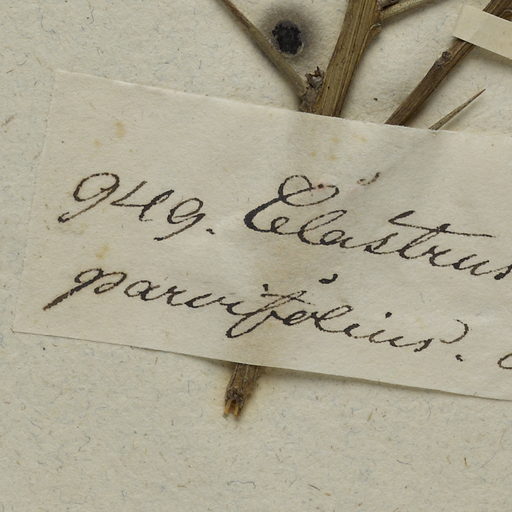 949. Elastrus
parvifolius.